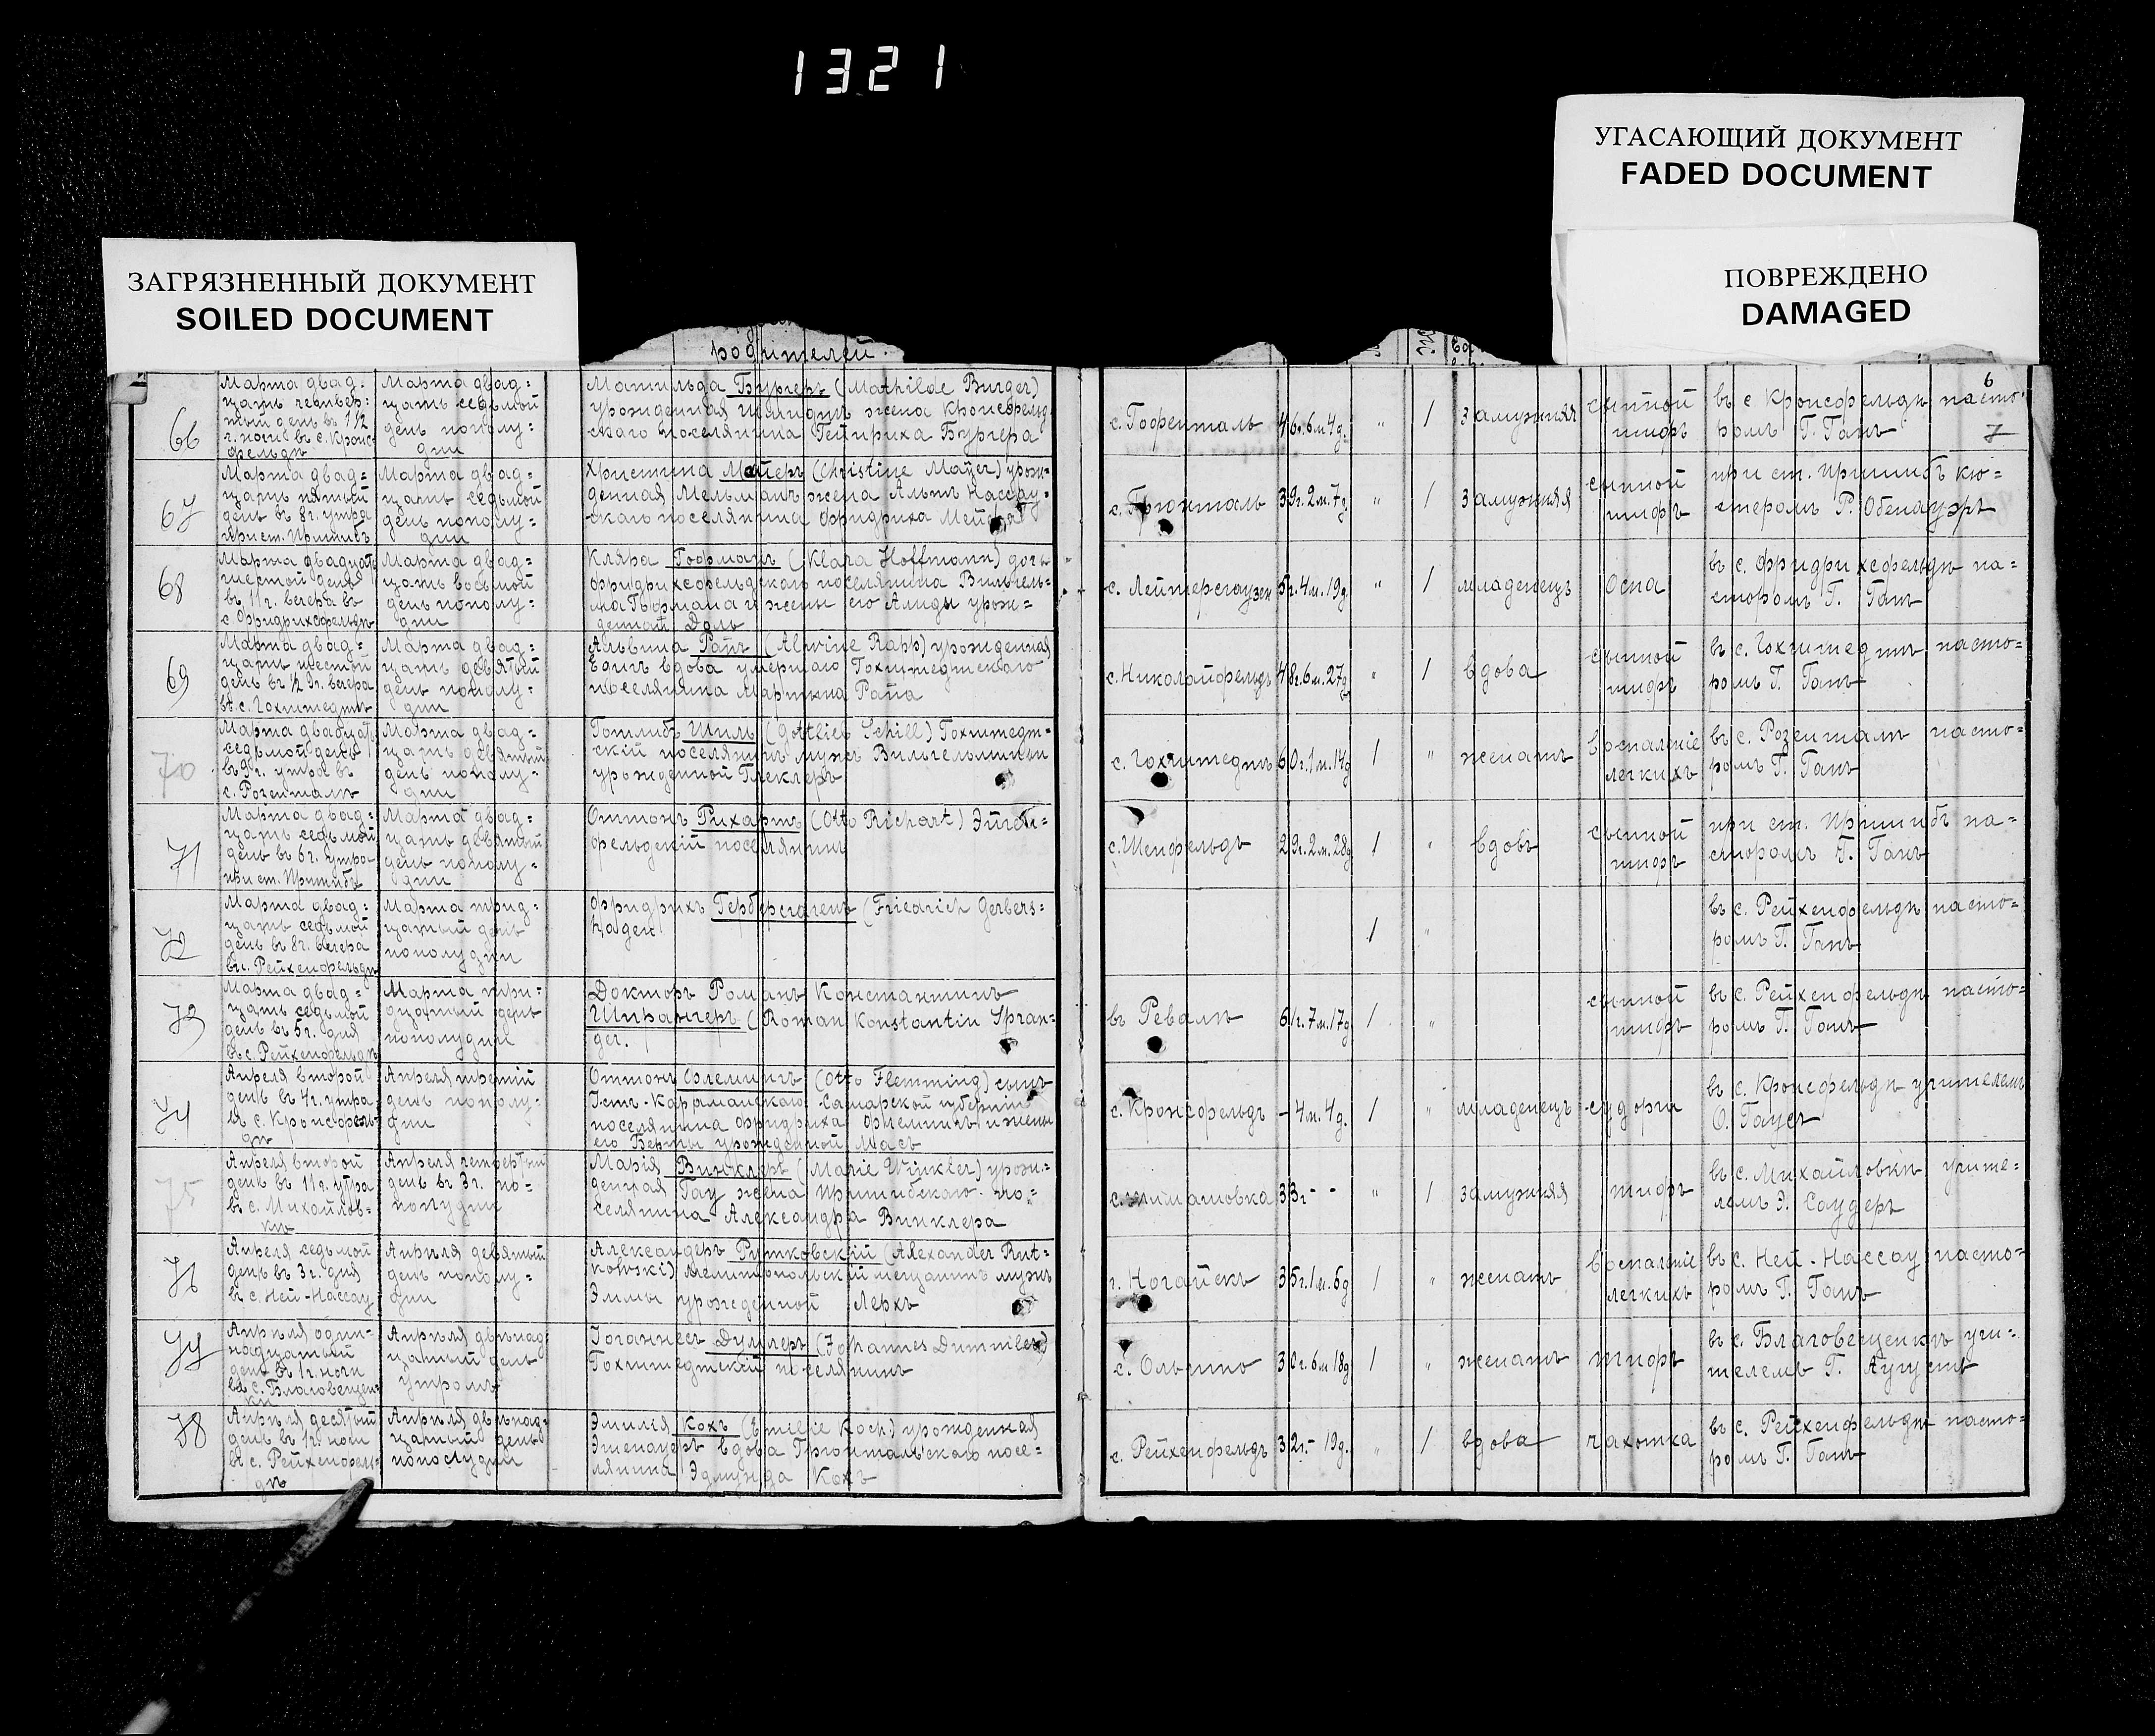 1321
УГАСАЮЩИЙ ДОКУМЕНТ
FADED DOCUMENT
ПОВРЕЖДЕНО
DAMAGED
ЗАГРЯЗНЕННЫЙ ДОКУМЕНТ
SOILED DOCUMENT
родителей.
6
7
66
Марта двад=
цать четвер=
тый день въ 1/2
г. ночи въ с. Кронс=
фельдѣ
Марта двад=
цать седьмой
день пополу=
дни
Матильда Бургеръ (Mathilde Burger)
урожденная Шмидтъ жена Кронсфельд
скаго поселянина Гейнриха Бургера
с. Гофенталь
46г. 6м. 4д.
"
1
замужняя
сыпной
тифъ
въ с Кронсфельдѣ пасто=
ромъ Г. Ганъ
67
Марта двад=
цать пятый
день въ 8г. утра
при ст. Пришибъ
Марта двад=
цать седьмой
день пополу=
дни
Христина Мейеръ (Christine Mayer) урож=
денная Мельманъ жена Альтъ Нассау=
скаго поселянина Фридриха Мейера
с. Грюнталь
39г. 2м. 7д.
"
1
замужняя
сыпной
тифъ
при ст. Пришибъ кю=
стеромъ Р. Обенауэръ
68
Марта двадцать
шестой день
въ 11г. вечера въ
с Фридрихсфельдъ
Марта двад=
цать восьмой
день пополу=
дни
Кляра Гофманъ (Klara Hoffmann) дочь
Фридрихсфельдскаго поселянина Вильгель=
ма Гофмана и жены его Алиды урож=
денной Доль
с. Лейтерсгаузен
5г. 4м. 19д.
"
1
младенецъ
Оспа
въ с. Фридрихсфельдѣ па=
сторомъ Г. Ганъ
69
Марта двад=
цать шестой
день въ 1/2 9г. вечера
въ с. Гохштедтъ
Марта двад=
цать девятый
день пополу=
дни
Альвина Рапъ (Alwine Rapp) урожденная
Ебигъ вдова умершаго Гохштедтскаго
поселянина Мартина Рапа
с. Николайфельдъ
48г. 6м. 27д.
"
1
вдова
сыпной
тифъ
въ с. Гохштедтѣ пасто=
ромъ Г. Ганъ
70
Марта двадцать
седьмой день
въ 9г. утра въ
с. Розенталь
Марта двад=
цать девятый
день пополу=
дни
Готлибъ Шилль (Gottlieb Schill) Гохштедт=
скій поселянинъ мужъ Вильгельмины
урожденной Глеклеръ
с. Гохштедтъ
60г. 1м. 14д
1
"
женатъ
Воспаленіе
легкихъ
въ с. Розенталѣ пасто=
ромъ Г. Ганъ
71
Марта двад=
цать седьмой
день въ 6г. утра
при ст. Пришибъ
Марта двад=
цать девятый
день пополу=
дни
Оттонъ Рихартъ (Otto Richart) Эйген=
фельдскій поселянинъ
с. Шенфельдъ
29г. 2м. 28д
1
"
вдовъ
сыпной
тифъ
при ст. Пришибъ па=
сторомъ Г. Ганъ
72
Марта двад=
цать седьмой
день въ 8г. вечера
въ с. Рейхенфельдѣ
Марта трид=
цатый день
пополудни
Фридрихъ Герберсгагенъ (Friedrich Gerbers=
hagen
1
"
въ с. Рейхенфельдѣ пасто=
ромъ Г. Ганъ
73
Марта двад=
цать седьмой
день въ 5г. дня
въ с. Рейхенфельдѣ
Марта три=
дцатый день
пополудни
Докторъ Романъ Константинъ
Шпрангеръ (Roman Konstantin Spran=
ger.
въ Ревалѣ
61г. 7м. 17д
1
"
сыпной
тифъ
въ с. Рейхенфельдѣ пасто=
ромъ Г. Ганъ
74
Апреля второй
день въ 4г. утра
въ с. Кронсфель=
дѣ
Апреля третій
день пополу=
дни
Оттонъ Флеммингъ (Otto Flemming) сынъ
Устъ-Караманскаго Самарской губерніи
поселянина Фридриха Флемингъ и жены
его Берты урожденной Масъ
с. Кронсфельдъ
- 4м. 4д.
1
"
младенецъ
судорги
въ с. Кронсфельдѣ учителемъ
О. Гаусъ
75
Апреля второй
день въ 11г. утра
въ с. Михайлов=
кѣ
Апреля четвертый
день въ 3г. по=
полудни
Марія Винклеръ (Marie Winkler) урож=
денная Гау жена Пришибскаго по=
селянина Александра Винклера
33г - -
"
1
замужняя
тифъ
въ с. Михайловкѣ учите=
лемъ Э. Саудеръ
76
Апреля седьмой
день въ 3г. дня
въ с. Ней-Нассау
Апрѣля девятый
день пополу=
дни
Александеръ Рутковскій (Alexander Rut=
kowski) Мелитопольскій мещанинъ мужъ
Эммы урожденной Лерхъ
г. Ногайскъ
35г. 1м. 6д
1
"
женатъ
Воспаленіе
легкихъ
въ с. Ней-Нассау пасто=
ромъ Г. Ганъ
77
Апрѣля один=
надцатый
день въ 1г. ночи
въ с. Благовещен
кѣ
Апрѣля двѣнад
цатый день
утромъ
Іоганнесъ Думлеръ (Johannes Dummler)
Гохштедтскій поселянинъ
с. Ольгино
30г. 6м 18д
1
"
женатъ
тифъ
въ с. Благовещенкѣ учи=
телемъ Г. Аугустъ
78
Апрѣля десятый
день въ 1г. ночи
въ с. Рейхенфель=
дѣ
Апрѣля двѣнад=
цатый день
пополудни
Эмилія Кохъ (Emilie Koch) урожденная
вдова Грюнтальскаго посе=
лянина Эдмунда Кохъ
с. Рейхенфельдъ
32г. - 19д.
"
1
вдова
чахотка
въ с. Рейхенфельдѣ пасто=
ромъ Г. Ганъ